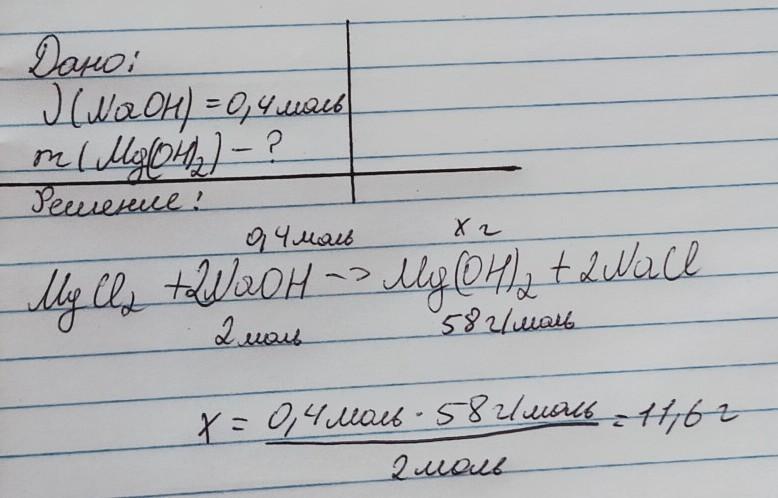 Дано:
ν(NaOH) = 0,4 моль
m(Mg(OH)₂) – ?
Решение:
0,4 моль x г
MgCl₂ + 2NaOH –> Mg(OH)₂ + 2NaCl
2 моль 58 г/моль
x = 0,4 моль · 58 г/моль = 11,6 г
2 моль